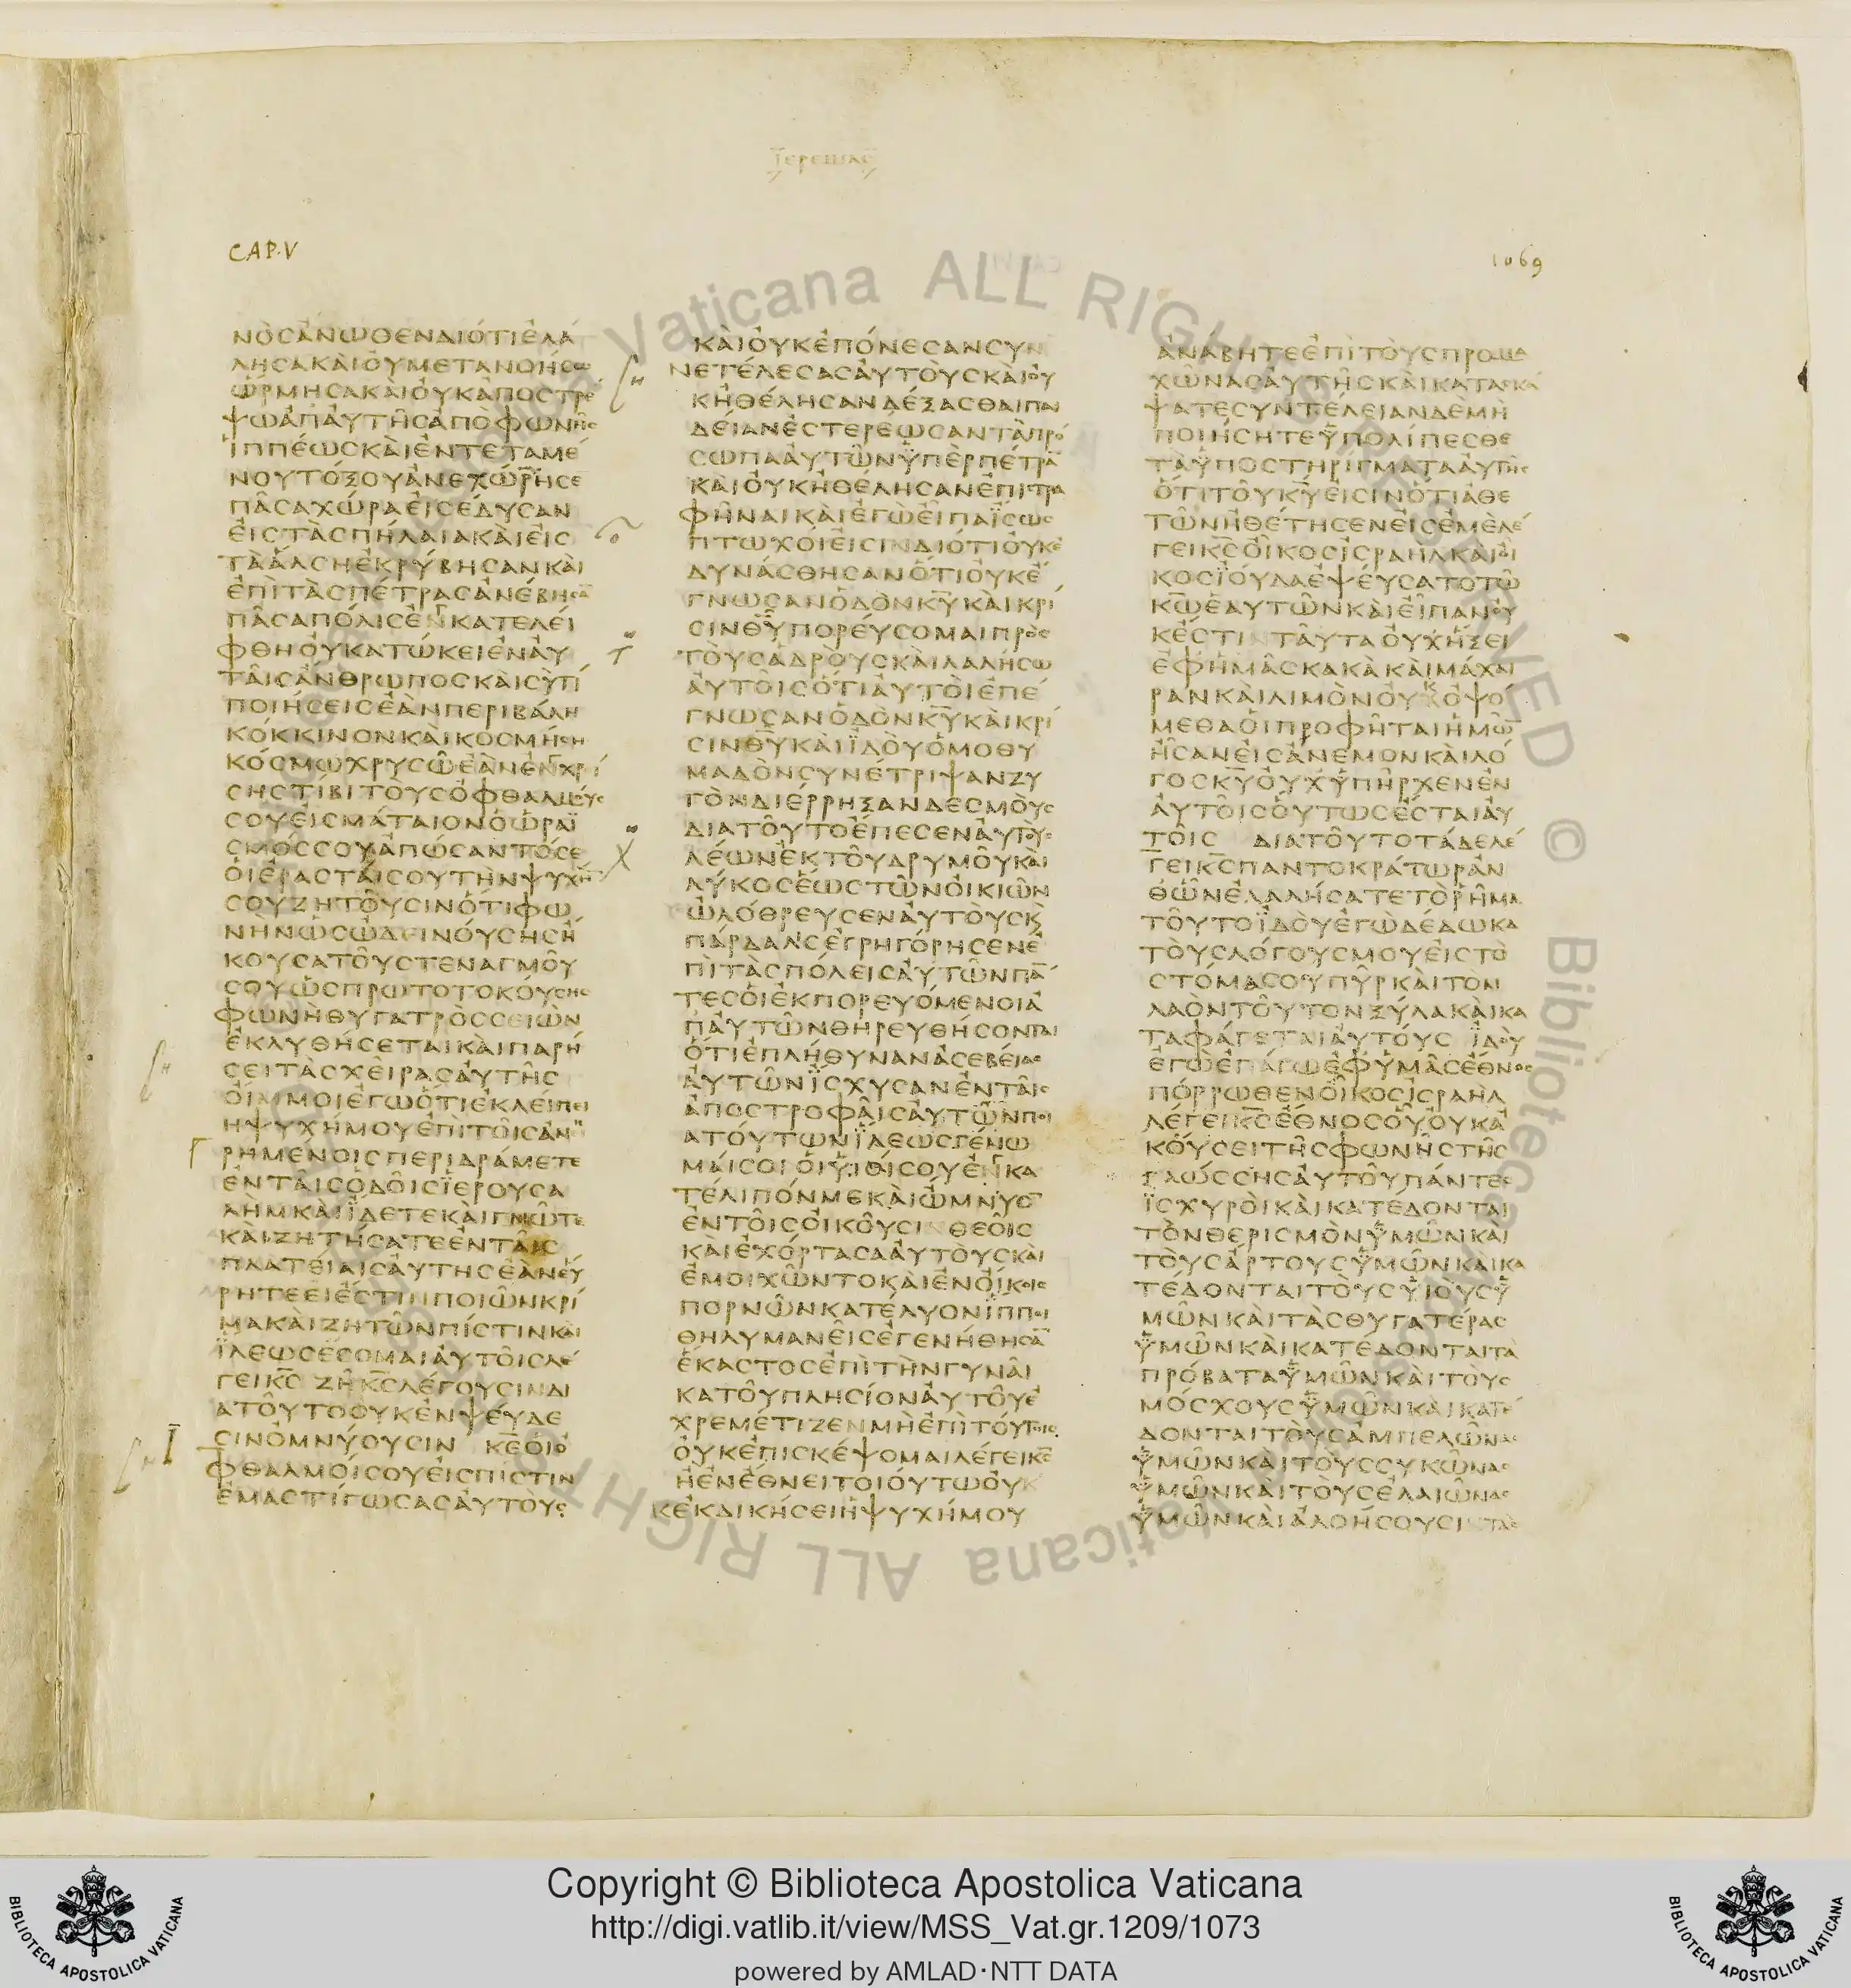 Ἰερεμίας
CAP. V
1069
ΝΟϹΑΝΩΘΕΝΔΙΟΤΙΕΛΑ
ΛΗϹΑΚΑΙΟΥΜΕΤΑΝΟΗϹΩ
ΩΡΜΗϹΑΚΑΙΟΥΚΑΠΟϹΤΡΕ
ΨΩΑΠΑΥΤΗϹΑΠΟΦΩΝΗϹ
ΙΠΠΕΩϹΚΑΙΕΝΤΕΤΑΜΕ
ΝΟΥΤΟΞΟΥΑΝΕΧΩΡΗϹΕ
ΠΑϹΑΧΩΡΑΕΙϹΕΔΥϹΑΝ
ΕΙϹΤΑϹΠΗΛΑΙΑΚΑΙΕΙϹ
ΤΑΑΛϹΗΕΚΡΥΒΗϹΑΝΚΑΙ
ΕΠΙΤΑϹΠΕΤΡΑϹΑΝΕΒΗϹΑ̅
ΠΑϹΑΠΟΛΙϹΕΝΚΑΤΕΛΕΙ
ΦΘΗΟΥΚΑΤΩΚΕΙΕΝΑΥ
ΤΑΙϹΑΝΘΡΩΠΟϹΚΑΙϹΥΤΙ
ΠΟΙΗϹΕΙϹΕΑΝΠΕΡΙΒΑΛΗ
ΚΟΚΚΙΝΟΝΚΑΙΚΟϹΜΗϹΗ
ΚΟϹΜΩΧΡΥϹΩΕΑΝΕΝΧΡΙ
ϹΗϹΤΙΒΙΤΟΥϹΟΦΘΑΛΜΟΥϹ
ϹΟΥΕΙϹΜΑΤΑΙΟΝΟΩΡΑΪ
ϹΜΟϹϹΟΥΑΠΩϹΑΝΤΟϹΕ
ΟΙΕΡΑϹΤΑΙϹΟΥΤΗΝΨΥΧΗ̅
ϹΟΥΖΗΤΟΥϹΙΝΟΤΙΦΩ
ΝΗΝΩϹΩΔΕΙΝΟΥϹΗϹΗ
ΚΟΥϹΑΤΟΥϹΤΕΝΑΓΜΟΥ
ϹΟΥΩϹΠΡΩΤΟΤΟΚΟΥϹΗϹ
ΦΩΝΗΘΥΓΑΤΡΟϹϹΕΙΩΝ
ΕΚΛΥΘΗϹΕΤΑΙΚΑΙΠΑΡΗ
ϹΕΙΤΑϹΧΕΙΡΑϹΑΥΤΗϹ
ΟΙΜΜΟΙΕΓΩΟΤΙΕΚΛΕΙΠΕΙ
ΗΨΥΧΗΜΟΥΕΠΙΤΟΙϹΑΝΗ
ΡΗΜΕΝΟΙϹΠΕΡΙΔΡΑΜΕΤΕ
ΕΝΤΑΙϹΟΔΟΙϹΪΕΡΟΥϹΑ
ΛΗΜΚΑΙΪΔΕΤΕΚΑΙΓΝΩΤΕ
ΚΑΙΖΗΤΗϹΑΤΕΕΝΤΑΙϹ
ΠΛΑΤΕΙΑΙϹΑΥΤΗϹΕΑΝΕΥ
ΡΗΤΕΕΙΕϹΤΙΝΠΟΙΩΝΚΡΙ
ΜΑΚΑΙΖΗΤΩΝΠΙϹΤΙΝΚΑΙ
ΪΛΕΩϹΕϹΟΜΑΙΑΥΤΟΙϹΛΕ
ΓΕΙΚ̅Ϲ̅ ΖΗΚ̅Ϲ̅ΛΕΓΟΥϹΙΝΔΙ
ΑΤΟΥΤΟΟΥΚΕΝΨΕΥΔΕ
ϹΙΝΟΜΝΥΟΥϹΙΝ Κ̅Ε̅ΟΙΟ
ΦΘΑΛΜΟΙϹΟΥΕΙϹΠΙϹΤΙΝ
ΕΜΑϹΤΙΓΩϹΑϹΑΥΤΟΥϹ
ΚΑΙΟΥΚΕΠΟΝΕϹΑΝϹΥΝ
ΝΕΤΕΛΕϹΑϹΑΥΤΟΥϹΚΑΙΟΥ
ΚΗΘΕΛΗϹΑΝΔΕΞΑϹΘΑΙΠΑΙ
ΔΕΙΑΝΕϹΤΕΡΕΩϹΑΝΤΑΠΡΟ
ϹΩΠΑΑΥΤΩΝΫΠΕΡΠΕΤΡΑ̅
ΚΑΙΟΥΚΗΘΕΛΗϹΑΝΕΠΙϹΤΡΑ
ΦΗΝΑΙΚΑΙΕΓΩΕΙΠΑΪϹΩϹ
ΠΤΩΧΟΙΕΙϹΙΝΔΙΟΤΙΟΥΚΕ
ΔΥΝΑϹΘΗϹΑΝΟΤΙΟΥΚΕ
ΓΝΩϹΑΝΟΔΟΝΚ̅Υ̅ΚΑΙΚΡΙ
ϹΙΝΘ̅Υ̅ΠΟΡΕΥϹΟΜΑΙΠΡΟϹ
ΤΟΥϹΑΔΡΟΥϹΚΑΙΛΑΛΗϹΩ
ΑΥΤΟΙϹΟΤΙΑΥΤΟΙΕΠΕ
ΓΝΩϹΑΝΟΔΟΝΚ̅Υ̅ΚΑΙΚΡΙ
ϹΙΝΘ̅Υ̅ΚΑΙΪΔΟΥΟΜΟΘΥ
ΜΑΔΟΝϹΥΝΕΤΡΙΨΑΝΖΥ
ΓΟΝΔΙΕΡΡΗΞΑΝΔΕϹΜΟΥϹ
ΔΙΑΤΟΥΤΟΕΠΕϹΕΝΑΥΤΟΥϹ
ΛΕΩΝΕΚΤΟΥΔΡΥΜΟΥΚΑΙ
ΛΥΚΟϹΕΩϹΤΩΝΟΙΚΙΩΝ
ΩΛΟΘΡΕΥϹΕΝΑΥΤΟΥϹΚϏ
ΠΑΡΔΑΛΙϹΕΓΡΗΓΟΡΗϹΕΝΕ
ΠΙΤΑϹΠΟΛΕΙϹΑΥΤΩΝΠΑ̅
ΤΕϹΟΙΕΚΠΟΡΕΥΟΜΕΝΟΙΑ
ΠΑΥΤΩΝΘΗΡΕΥΘΗϹΟΝΤΑΙ
ΟΤΙΕΠΛΗΘΥΝΑΝΑϹΕΒΕΙΑϹ
ΑΥΤΩΝΪϹΧΥϹΑΝΕΝΤΑΙϹ
ΑΠΟϹΤΡΟΦΑΙϹΑΥΤΩΝΠΟΙ
ΑΤΟΥΤΩΝΪΛΕΩϹΓΕΝΩ
ΜΑΙϹΟΙΟΙΫΙΟΙϹΟΥΕΝΚΑ
ΤΕΛΙΠΟΝΜΕΚΑΙΩΜΝΥΟ̅
ΕΝΤΟΙϹΟΙΚΟΥϹΙΝΘΕΟΙϹ
ΚΑΙΕΧΟΡΤΑϹΑΑΥΤΟΥϹΚΑΙ
ΕΜΟΙΧΩΝΤΟΚΑΙΕΝΟΙΚΟΙϹ
ΠΟΡΝΩΝΚΑΤΕΛΥΟΝΪΠΠΟΙ
ΘΗΛΥΜΑΝΕΙϹΕΓΕΝΗΘΗϹΑ̅
ΕΚΑϹΤΟϹΕΠΙΤΗΝΓΥΝΑΙ
ΚΑΤΟΥΠΛΗϹΙΟΝΑΥΤΟΥΕ
ΧΡΕΜΕΤΙΖΕΝΜΗΕΠΙΤΟΥΤΟΙϹ
ΟΥΚΕΠΙϹΚΕΨΟΜΑΙΛΕΓΕΙΚ̅Ϲ̅
ΗΕΝΕΘΝΕΙΤΟΙΟΥΤΩΟΥΚ
ΚΕΚΔΙΚΗϹΕΙΗΨΥΧΗΜΟΥ
ΑΝΑΒΗΤΕΕΠΙΤΟΥϹΠΡΟΜΑ
ΧΩΝΑϹΑΥΤΗϹΚΑΙΚΑΤΑϹΚΑ
ΨΑΤΕϹΥΝΤΕΛΕΙΑΝΔΕΜΗ
ΠΟΙΗϹΗΤΕΫΠΟΛΙΠΕϹΘΕ
ΤΑΫΠΟϹΤΗΡΙΓΜΑΤΑΑΥΤΗϹ
ΟΤΙΤΟΥΚ̅Υ̅ΕΙϹΙΝΟΤΙΑΘΕ
ΤΩΝΗΘΕΤΗϹΕΝΕΙϹΕΜΕΛΕ
ΓΕΙΚ̅Ϲ̅ΟΙΚΟϹΙϹΡΑΗΛΚΑΙΟΙ
ΚΟϹΪΟΥΔΑΕΨΕΥϹΑΤΟΤΩ
Κ̅Ω̅ΕΑΥΤΩΝΚΑΙΕΙΠΑΝΟΥ
ΚΕϹΤΙΝΤΑΥΤΑΟΥΧΗΞΕΙ
ΕΦΗΜΑϹΚΑΚΑΚΑΙΜΑΧΑΙ
ΡΑΝΚΑΙΛΙΜΟΝΟΥΚΟΨΟ
ΜΕΘΑΟΙΠΡΟΦΗΤΑΙΗΜΩ̅
ΗϹΑΝΕΙϹΑΝΕΜΟΝΚΑΙΛΟ
ΓΟϹΚ̅Υ̅ΟΥΧΫΠΗΡΧΕΝΕΝ
ΑΥΤΟΙϹΟΥΤΩϹΕϹΤΑΙΑΥ
ΤΟΙϹ ΔΙΑΤΟΥΤΟΤΑΔΕΛΕ
ΓΕΙΚ̅Ϲ̅ΠΑΝΤΟΚΡΑΤΩΡΑΝ
ΘΩΝΕΛΑΛΗϹΑΤΕΤΟΡΗΜΑ
ΤΟΥΤΟΪΔΟΥΕΓΩΔΕΔΩΚΑ
ΤΟΥϹΛΟΓΟΥϹΜΟΥΕΙϹΤΟ
ϹΤΟΜΑϹΟΥΠΥΡΚΑΙΤΟΝ
ΛΑΟΝΤΟΥΤΟΝΞΥΛΑΚΑΙΚΑ
ΤΑΦΑΓΕΤΑΙΑΥΤΟΥϹ ΪΔΟΥ
ΕΓΩΕΠΑΓΩΕΦΥΜΑϹΕΘΝΟϹ
ΠΟΡΡΩΘΕΝΟΙΚΟϹΙϹΡΑΗΛ
ΛΕΓΕΙΚ̅Ϲ̅ΕΘΝΟϹΟΥΟΥΚΑ
ΚΟΥϹΕΙΤΗϹΦΩΝΗϹΤΗϹ
ΓΛΩϹϹΗϹΑΥΤΟΥΠΑΝΤΕϹ
ΪϹΧΥΡΟΙΚΑΙΚΑΤΕΔΟΝΤΑΙ
ΤΟΝΘΕΡΙϹΜΟΝΫΜΩΝΚΑΙ
ΤΟΥϹΑΡΤΟΥϹΫΜΩΝΚΑΙΚΑ
ΤΕΔΟΝΤΑΙΤΟΥϹΫΙΟΥϹΫ
ΜΩΝΚΑΙΤΑϹΘΥΓΑΤΕΡΑϹ
ΫΜΩΝΚΑΙΚΑΤΕΔΟΝΤΑΙΤΑ
ΠΡΟΒΑΤΑΫΜΩΝΚΑΙΤΟΥϹ
ΜΟϹΧΟΥϹΫΜΩΝΚΑΙΚΑΤΕ
ΔΟΝΤΑΙΤΟΥϹΑΜΠΕΛΩΝΑϹ
ΫΜΩΝΚΑΙΤΟΥϹϹΥΚΩΝΑϹ
ΫΜΩΝΚΑΙΤΟΥϹΕΛΑΙΩΝΑϹ
ΫΜΩΝΚΑΙΑΛΟΗϹΟΥϹΙΝΤΑϹ
Vaticana ALL RIGHTS RESERVED © Biblioteca Apostolica Vaticana ALL RIGHTS
Copyright © Biblioteca Apostolica Vaticana
http://digi.vatlib.it/view/MSS_Vat.gr.1209/1073
powered by AMLAD·NTT DATA
BIBLIOTECA APOSTOLICA VATICANA
BIBLIOTECA APOSTOLICA VATICANA